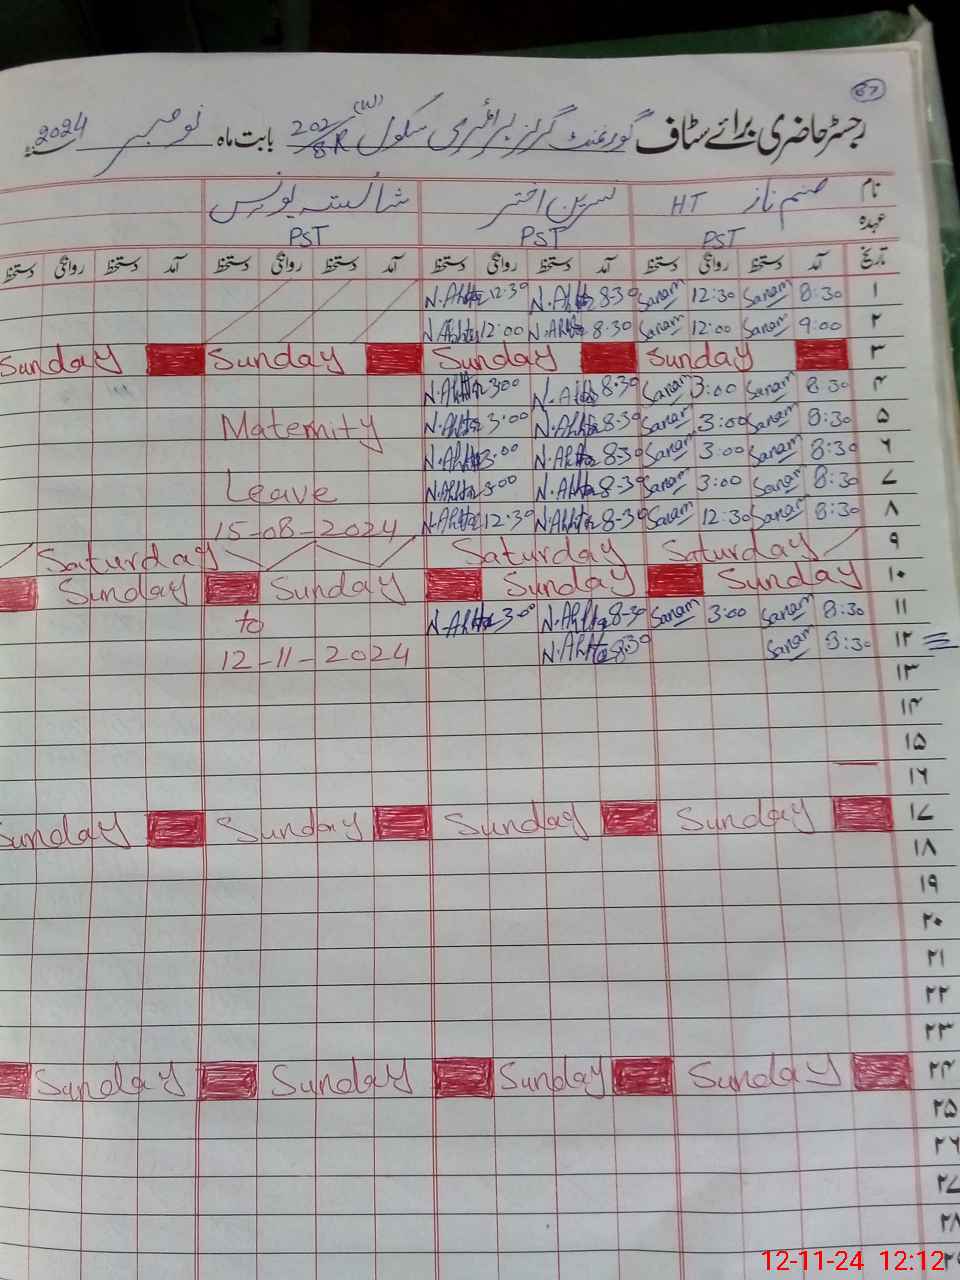 67
رجسٹر حاضری برائے سٹاف گورنمنٹ گرلز پرائمری سکول (W) 202/8R بابت ماہ نومبر 2024
نام صنم ناز HT نسرین اختر شائستہ یونس
عہدہ PST PST PST
تاریخ آمد دستخط روانگی دستخط آمد دستخط روانگی دستخط آمد دستخط روانگی دستخط آمد دستخط روانگی دستخط
۱ 8:30 Sanam 12:30 Sanam 8-30 N.Akhtar 12-30 N.Akhtar
۲ 9:00 Sanam 12:00 Sanam 8-30 N.Akhtar 12:00 N.Akhtar
۳ Sunday Sunday Sunday Sunday
۴ 8:30 Sanam 3:00 Sanam 8-30 N.Akhtar 3:00 N.Akhtar
۵ 8:30 Sanam 3:00 Sanam 8-30 N.Akhtar 3:00 N.Akhtar Maternity
۶ 8:30 Sanam 3:00 Sanam 8-30 N.Akhtar 3:00 N.Akhtar
۷ 8:30 Sanam 3:00 Sanam 8-30 N.Akhtar 3:00 N.Akhtar Leave
۸ 8:30 Sanam 12:30 Sanam 8-30 N.Akhtar 12:30 N.Akhtar 15-08-2024
۹ Saturday Saturday Saturday
۱۰ Sunday Sunday Sunday Sunday
۱۱ 8:30 Sanam 3:00 Sanam 8-30 N.Akhtar 3:00 N.Akhtar to
۱۲ 8:30 Sanam 8-30 N.Akhtar 12-11-2024
۱۳
۱۴
۱۵
۱۶
۱۷ Sunday Sunday Sunday Sunday
۱۸
۱۹
۲۰
۲۱
۲۲
۲۳
۲۴ Sunday Sunday Sunday Sunday
۲۵
۲۶
۲۷
۲۸
12-11-24 12:12